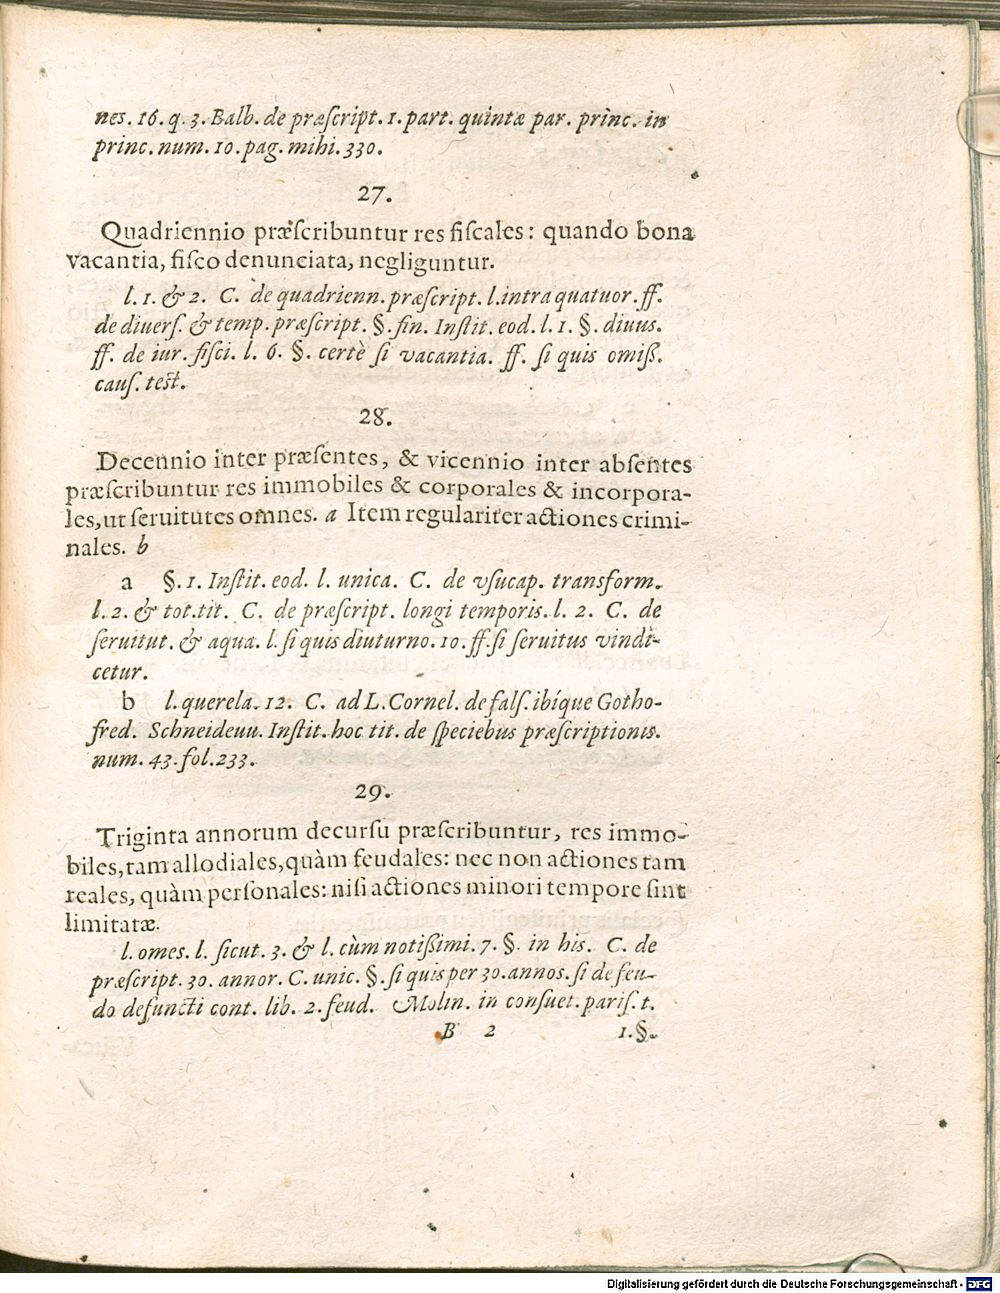 nes. 16. q. 3. Balb. de præſcript. 1. part. quintæ par. princ. in
princ. num. 10. pag. mihi. 330.
27.
Quadriennio præſcribuntur res fiſcales: quando bona
vacantia, fiſco denunciata, negliguntur.
l. 1. & 2. C. de quadrienn. præſcript. l. intra quatuor. ff.
de diuerſ. & temp. præſcript. §. fin. Inſtit. eod. l. 1. §. diuus.
ff. de iur. fiſci. l. 6. §. certè ſi vacantia. ff. ſi quis omiß.
cauſ. teſt.
28.
Decennio inter præſentes, & vicennio inter abſentes
præſcribuntur res immobiles & corporales & incorpora-
les, ut ſeruitutes omnes. a Item regulariter actiones crimi-
nales. b
a §. 1. Inſtit. eod. l. unica. C. de vſucap. transform.
l. 2. & tot. tit. C. de præſcript. longi temporis. l. 2. C. de
ſeruitut. & aqua. l. ſi quis diuturno. 10. ff. ſi ſeruitus vindi-
cetur.
b l. querela. 12. C. ad L. Cornel. de falſ. ibíque Gotho-
fred. Schneideuu. Inſtit. hoc tit. de ſpeciebus præſcriptionis.
num. 43. fol. 233.
29.
Triginta annorum decurſu præſcribuntur, res immo-
biles, tam allodiales, quàm feudales: nec non actiones tam
reales, quàm perſonales: niſi actiones minori tempore ſint
limitatæ.
l. omes. l. ſicut. 3. & l. cùm notißimi. 7. §. in his. C. de
præſcript. 30. annor. C. unic. §. ſi quis per 30. annos. ſi de feu-
do defuncti cont. lib. 2. feud. Molin. in conſuet. pariſ. t.
B 2 1. §.
Digitalisierung gefördert durch die Deutsche Forschungsgemeinschaft - DFG